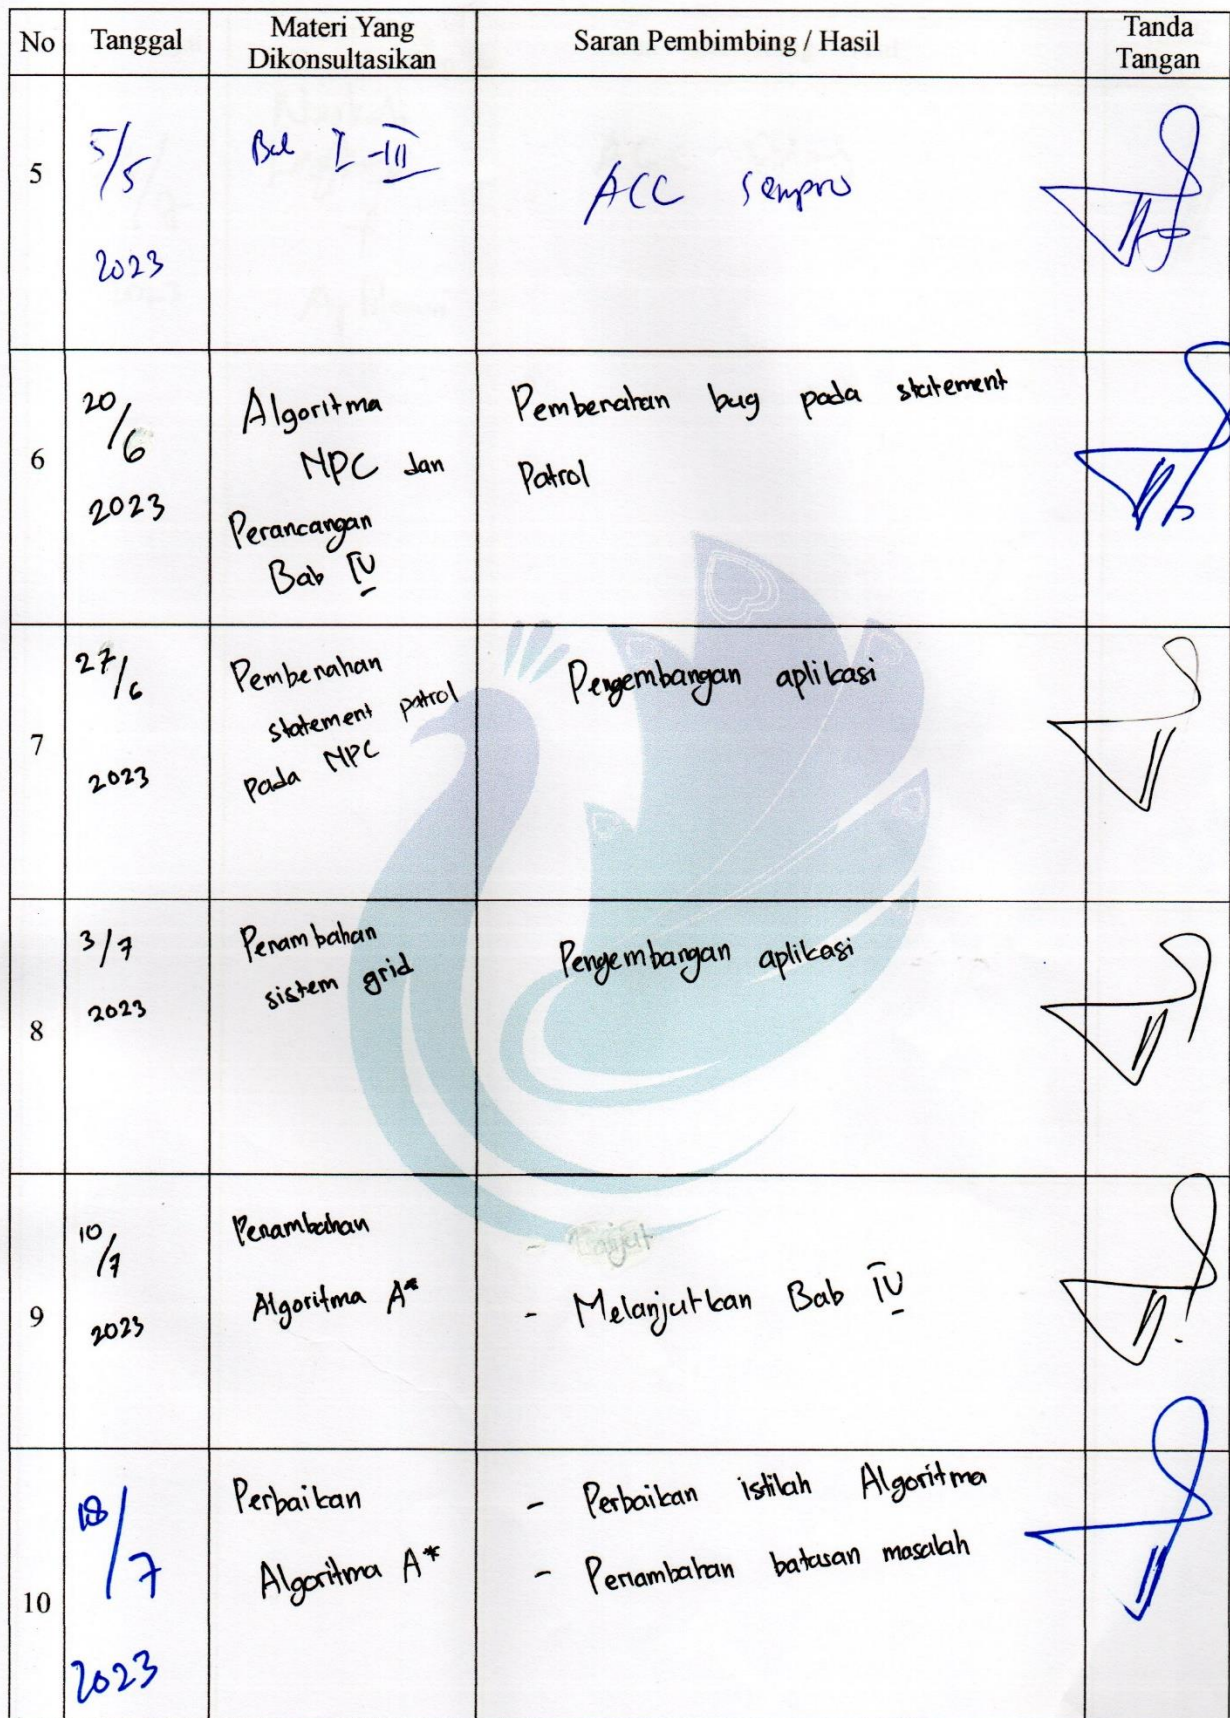 No
Tanggal
Materi Yang
Dikonsultasikan
Saran Pembimbing / Hasil
Tanda
Tangan
5
5/5
2023
Bab I - III
ACC Sempro
6
20/6
2023
Algoritma
NPC dan
Perancangan
Bab IV
Pembenahan bug pada statement
Patrol
7
27/6
2023
Pembenahan
statement patrol
pada NPC
Pengembangan aplikasi
8
3/7
2023
Penambahan
sistem grid
Pengembangan aplikasi
9
10/7
2023
Penambahan
Algoritma A*
- Lanjut
- Melanjutkan Bab IV
10
18/7
2023
Perbaikan
Algoritma A*
- Perbaikan istilah Algoritma
- Penambahan batasan masalah